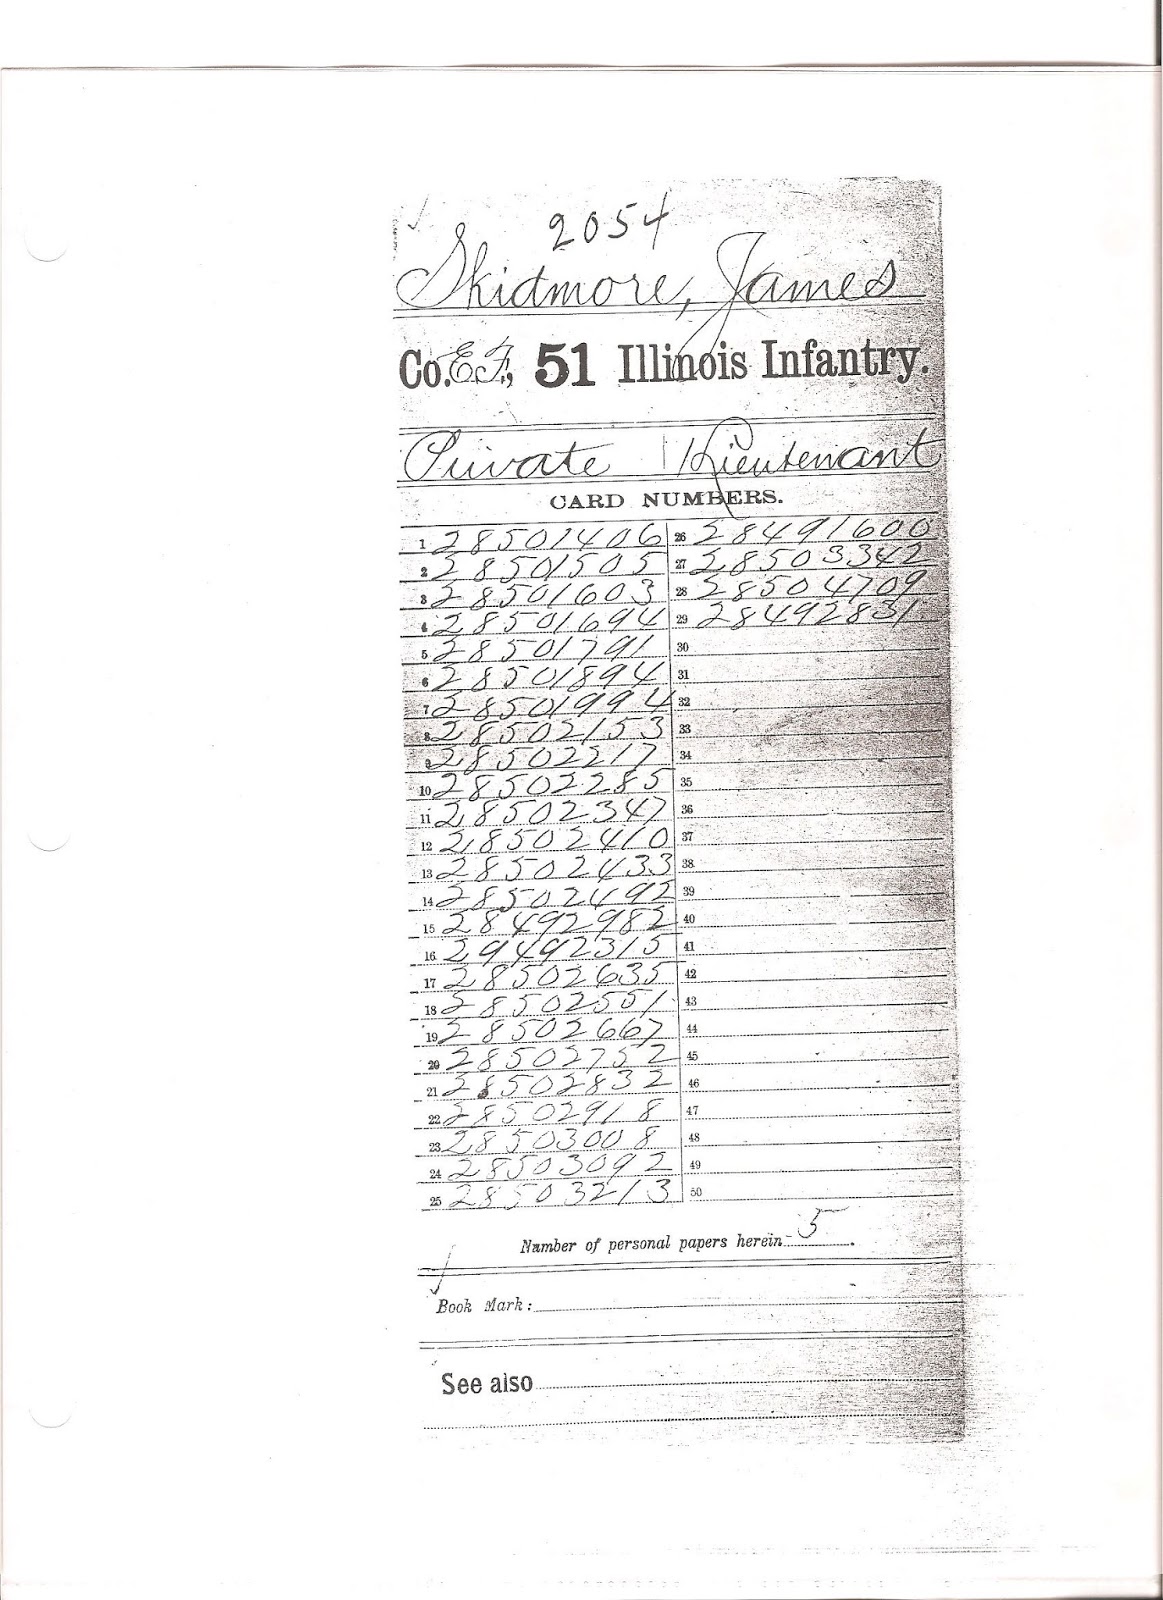 2054
Skidmore, James
Co. E F, 51 Illinois Infantry.
Private | Lieutenant
CARD NUMBERS.
1 28501406 26 28491600
2 28501505 27 28503342
3 28501603 28 28504709
4 28501694 29 28492831
5 28501791 30
6 28501894 31
7 28501994 32
8 28502153 33
9 28502217 34
10 28502285 35
11 28502347 36
12 28502410 37
13 28502433 38
14 28502492 39
15 28492982 40
16 29492315 41
17 28502635 42
18 28502551 43
19 28502667 44
20 28502752 45
21 28502832 46
22 28502918 47
23 28503008 48
24 28503092 49
25 28503213 50
Number of personal papers herein 5.
Book Mark:
See also